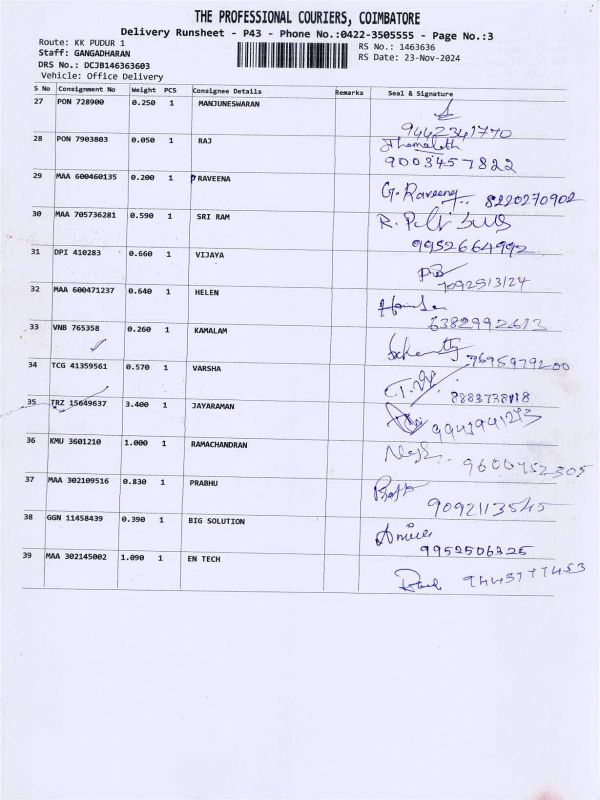 THE PROFESSIONAL COURIERS, COIMBATORE
Delivery Runsheet - P43 - Phone No.:0422-3505555 - Page No.:3
Route: KK PUDUR 1
RS No.: 1463636
Staff: GANGADHARAN
RS Date: 23-Nov-2024
DRS No.: DCJB146363603
Vehicle: Office Delivery
S No Consignment No Weight PCS Consignee Details Remarks Seal & Signature
27 PON 728900 0.250 1 MANJUNESWARAN
9442341770
28 PON 7903803 0.050 1 RAJ
9003457822
29 MAA 600460135 0.200 1 PRAVEENA
G. Raveena 8220270902
30 MAA 705736281 0.590 1 SRI RAM
R.
9952664992
31 DPI 410283 0.660 1 VIJAYA
7092513124
32 MAA 600471237 0.640 1 HELEN
6382992613
33 VNB 765358 0.260 1 KAMALAM
34 TCG 41359561 0.570 1 VARSHA
35 TRZ 15649637 3.400 1 JAYARAMAN
36 KMU 3601210 1.000 1 RAMACHANDRAN
9600752305
37 MAA 302109516 0.830 1 PRABHU
9092113545
38 GGN 11458439 0.390 1 BIG SOLUTION
9952506325
39 MAA 302145002 1.090 1 EN TECH